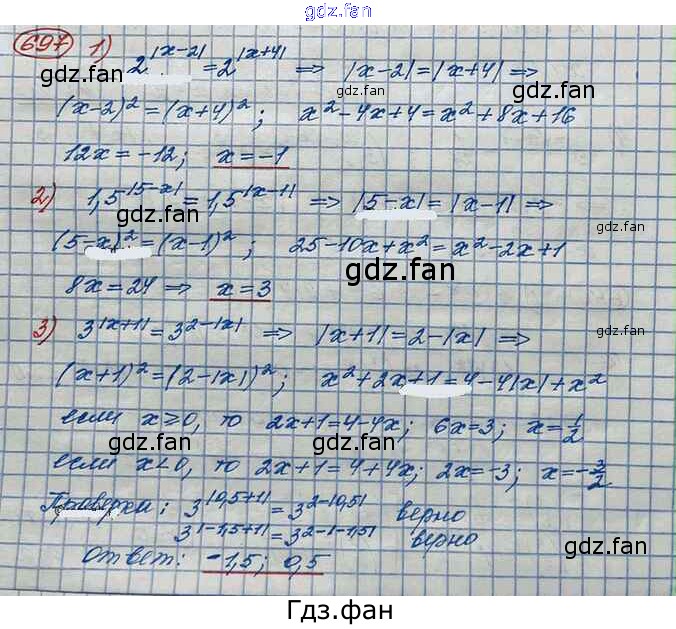 gdz.fan
697 1) 2^|x-2| = 2^|x+4| ⇒ |x-2| = |x+4| ⇒
gdz.fan gdz.fan
(x-2)² = (x+4)²; x² - 4x + 4 = x² + 8x + 16
12x = -12; x = -1
2) 1,5^|5-x| = 1,5^|x-1| ⇒ |5-x| = |x-1| ⇒
gdz.fan gdz.fan
(5-x)² = (x-1)²; 25 - 10x + x² = x² - 2x + 1
gdz.fan
8x = 24 ⇒ x = 3
3) 3^|x+1| = 3^(2-|x|) ⇒ |x+1| = 2-|x| ⇒
(x+1)² = (2-|x|)²; x² + 2x + 1 = 4 - 4|x| + x²
gdz.fan gdz.fan
если x ≥ 0, то 2x+1 = 4-4x; 6x = 3; x = 1/2
gdz.fan gdz.fan
если x < 0, то 2x+1 = 4+4x; 2x = -3; x = -3/2
Проверка: 3^|0,5+1| = 3^(2-|0,5|) верно
3^|-1,5+1| = 3^(2-|-1,5|) верно
gdz.fan gdz.fan
Ответ: -1,5; 0,5
Гдз.фан